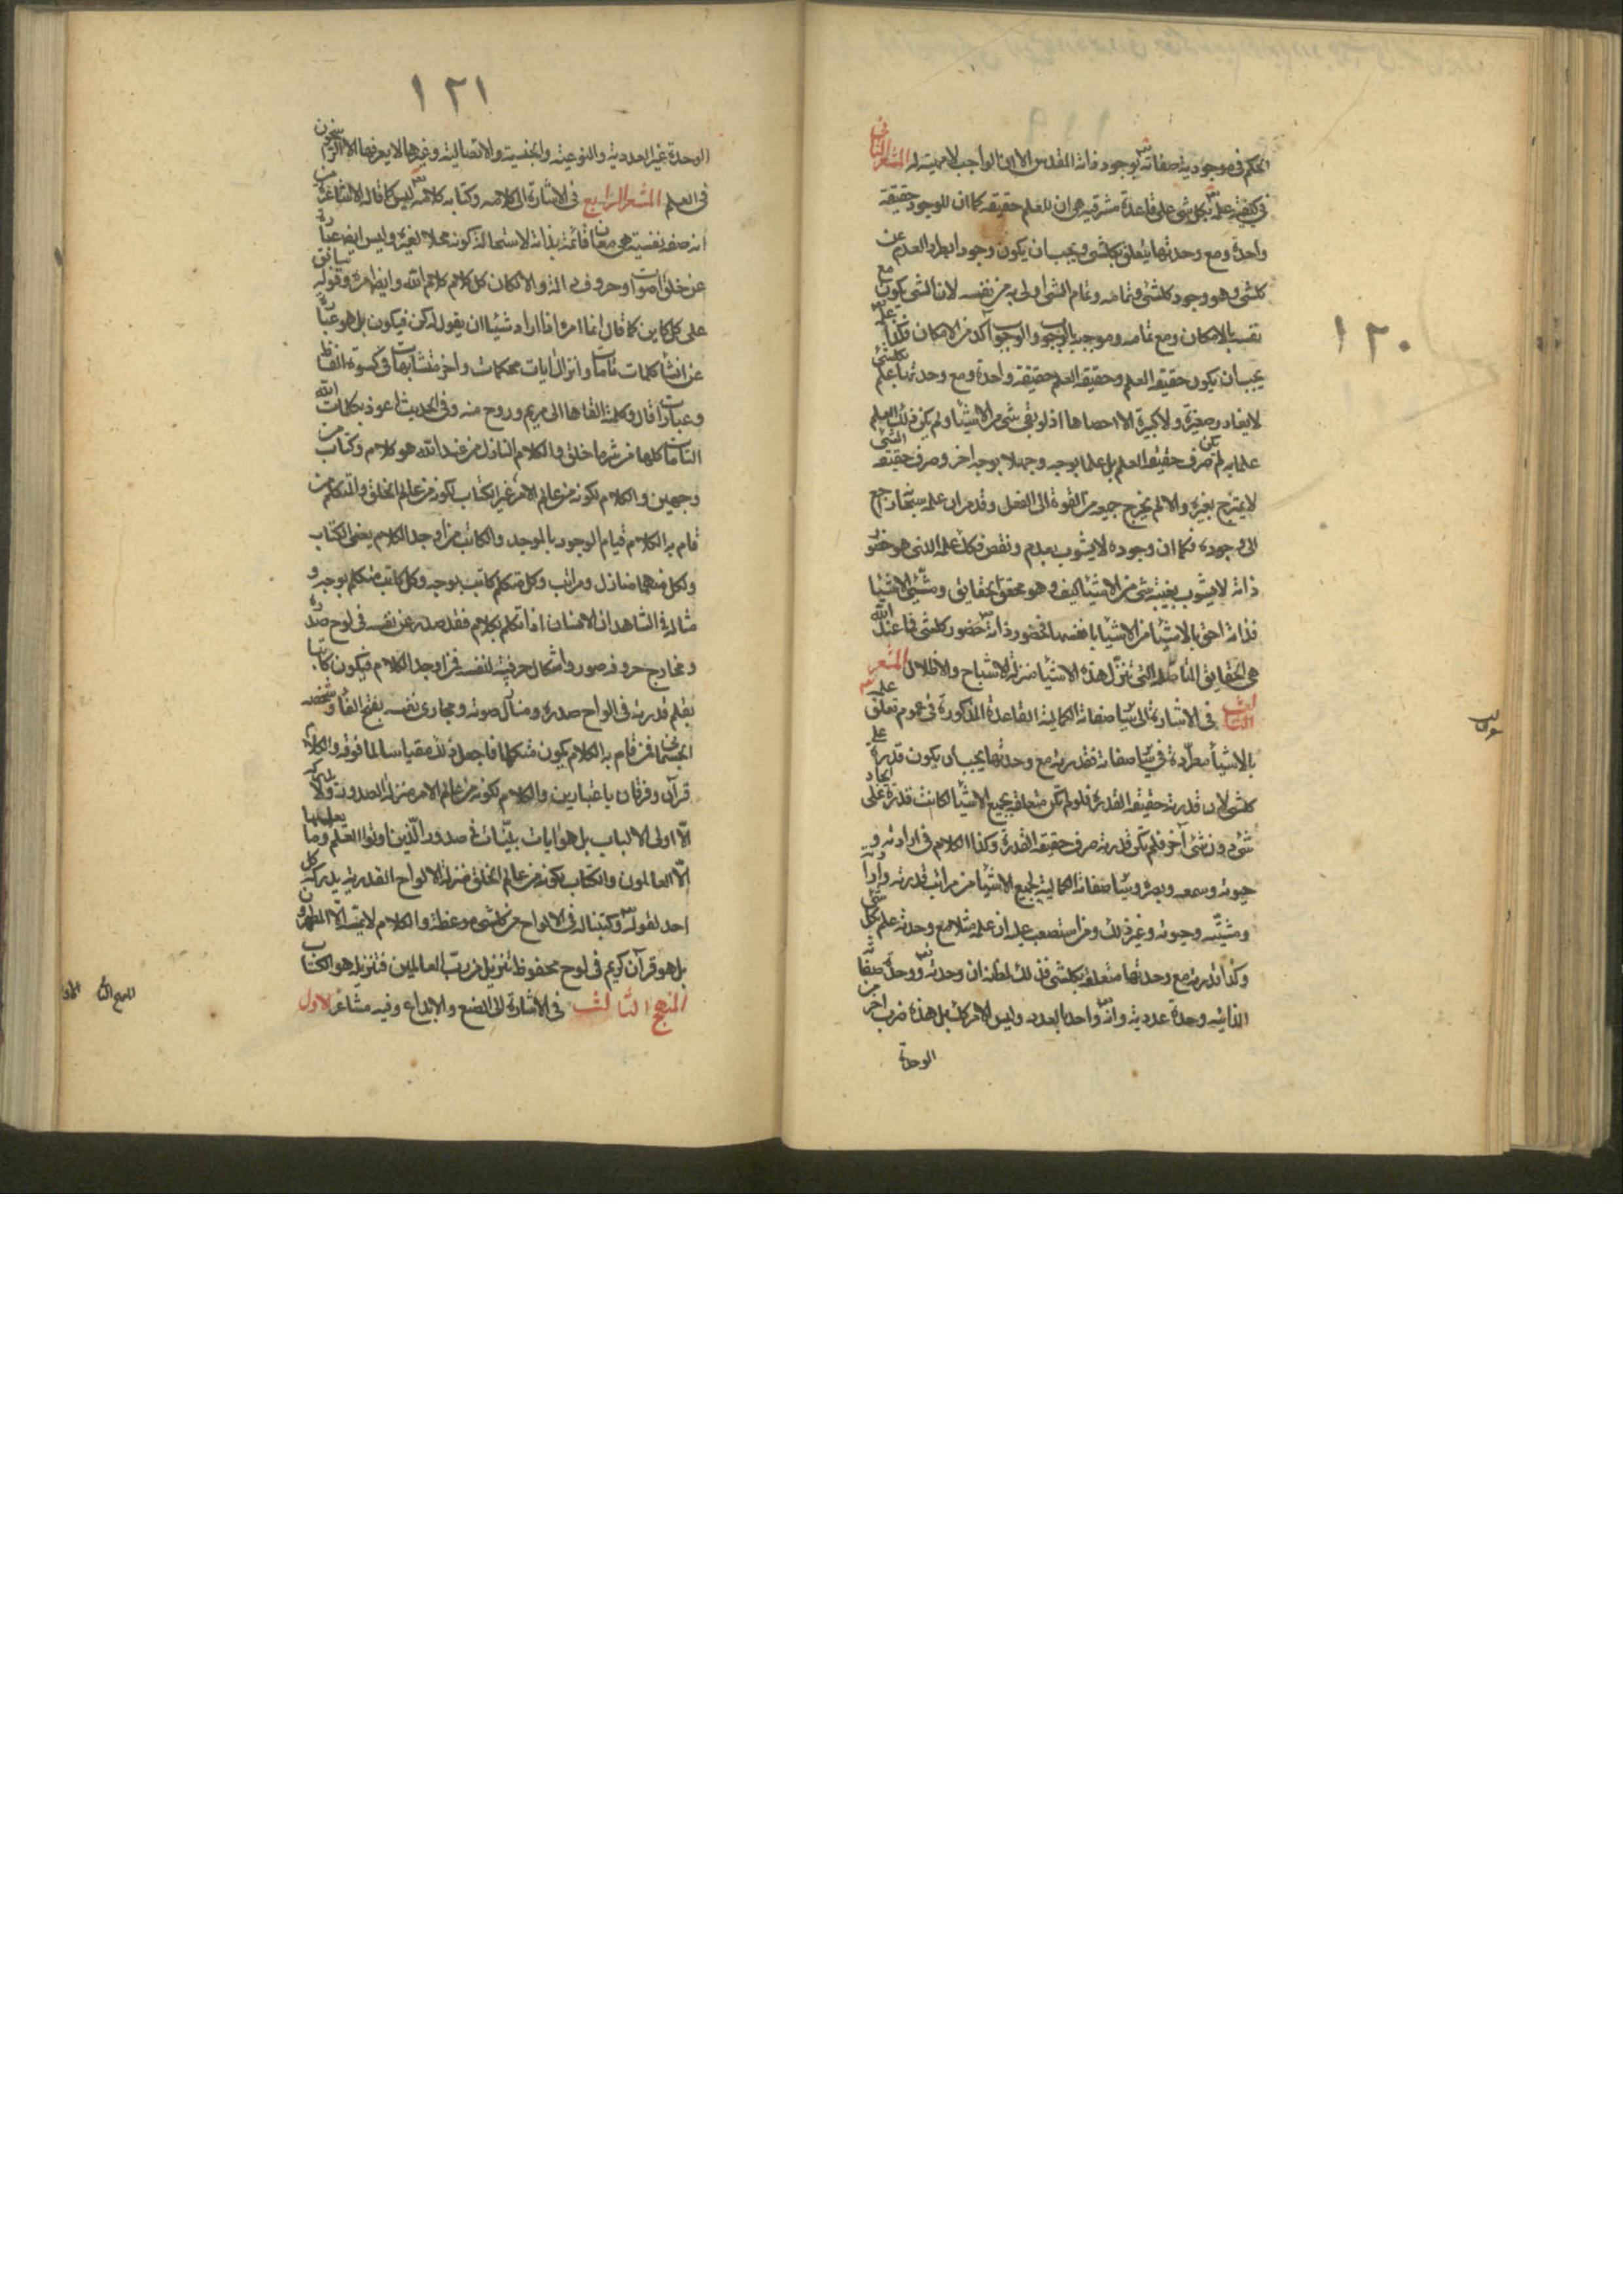 ١٢٠
الحكم فى موجودية صفاته تعـ بوجود ذاته المقدس الا ان الواجب لا مهية له المشعر الثانى
فى كيفية علمه تعـ بكل شئ على قاعدة مشرقية هى ان للعلم حقيقة كما ان للوجود حقيقة
واحدة ومع وحدتها يتعلق بكلشئ ويجب ان يكون وجودا يطرد العدم عن
كلشئ وهو وجود كلشئ وتمامه وتمام الشئ اولى به من نفسه لان الشئ يكون مع
نفسه بالامكان ومع تمامه وموجبه بالوجوب والوجوب آكد من الامكان فكذا علمه تعـ
يجب ان يكون حقيقة العلم وحقيقة العلم حقيقة واحدة ومع وحدتها علم بكلشئ
لا يغادر صغيرة ولا كبيرة الا احصاها اذ لو بقى شئ من الاشيا ولم يكن ذلك العلم
علما به لم يكن صرف حقيقة العلم بل علما بوجه وجهلا بوجه اخر وصرف حقيقة الشئ
لا يمتزج بغيره والا لم يخرج جميعه من القوة الى الفعل وقد مر ان علمه سبحانه راجع
الى وجوده فكما ان وجوده لا يشوب بعدم ونقص فكذلك علمه الذى هو حضور
ذاته لا يشوب بغيبة شئ من الاشيا كيف وهو محقق الحقايق ومشيئ الاشيا
فذاته احق بالاشيا من الاشيا بانفسها فحضور ذاته تعـ حضور كلشئ فما عند الله
هى الحقايق المتاصلة التى تنزل هذه الاشيا منزلة الاشباح والاظلال المشعر
الثالث فى الاشارة الى سائر صفاته الكمالية القاعدة المذكورة فى عموم تعلق علمه
بالاشيا مطردة فى سائر صفاته فقدرته مع وحدتها يجب ان يكون قدرة على
كلشئ لان قدرته حقيقة القدرة فلو لم تكن متعلقة بجميع الاشيا لكانت قدرة على ايجاد
شئ دون شئ آخر فلم تكن قدرته صرف حقيقة القدرة وكذا الكلام فى ارادته و
حيوته وسمعه وبصره وسائر صفاته الكمالية فجميع الاشيا من مراتب قدرته وارادته
ومشيته وحيوته وغير ذلك ومن استصعب عليه ان علمه مثلا مع وحدته علم بكل شئ
وكذا قدرته مع وحدتها متعلقة بكلشئ فذلك لظنه ان وحدته تعـ ووحدة صفاته
الذاتية وحدة عددية وانه تعـ واحد بالعدد وليس الامر كذلك بل هذه ضرب اخر من
الوحدة
١٢١
الوحدة غير العددية والنوعية والجنسية والاتصالية وغيرها لا يعرفها الا الراسخون
فى العلم المشعر الرابع فى الاشارة الى كلامه وكتابه كلامه تعـ ليس كما قاله الاشاعرة من
انه صفة نفسية هى معان قائمة بذاته لاستحالة كونه محلا لغيره وليس ايضا عبارة
عن خلق اصوات وحروف دالة والا لكان كل كلام كلام الله وايضا امره وقوله سابق
على كل كاين كما قال انما امره اذا اراد شيئا ان يقول له كن فيكون بل هو عبارة
عن انشا كلمات تامات وانزال ايات محكمات واخر متشابهات فى كسوة الفاظ
وعبارات قال وكلمته القاها الى مريم وروح منه وفى الحديث اعوذ بكلمات الله
التامات كلها من شر ما خلق والكلام النازل من عند الله هو كلام وكتاب من
وجهين والكلام لكونه من عالم الامر غير الكتاب لكونه من عالم الخلق والمتكلم من
قام به الكلام قيام الوجود بالموجد والكاتب من اوجد الكلام يعنى الكتاب
ولكل منهما منازل ومراتب وكل متكلم كاتب بوجه وكل كاتب متكلم بوجه و
مثاله فى الشاهد ان الانسان اذا تكلم بكلام فقد صدر عن نفسه فى لوح صدره
ومخارج حروفه صور واشكال حرفية لنفسه فمن اوجد الكلام فيكون كاتبا
بقلم قدرته فى الواح صدره ومنازل صوته ومجارى نفسه بفتح الفا وشخصه
الجسمانى من قام به الكلام يكون متكلما فاجعل ذلك مقياسا لما فوقه والكلام
قرآن وفرقان باعتبارين والكلام لكونه من عالم الامر منزله الصدور ولا يدركه
الا اولى الالباب بل هو ايات بينات فى صدور الذين اوتوا العلم وما يعقلها
الا العالمون والكتاب لكونه من عالم الخلق منزله الالواح القدرية يدركه كل
احد لقوله تعـ وكتبنا له فى الالواح من كلشئ موعظة والكلام لا يمسه الا المطهرون
بل هو قرآن كريم فى لوح محفوظ تنزيل من رب العالمين فتنزيله هو الكتاب
المنهج الثالث فى الاشارة الى الصنع والابداع وفيه مشاعر الاول